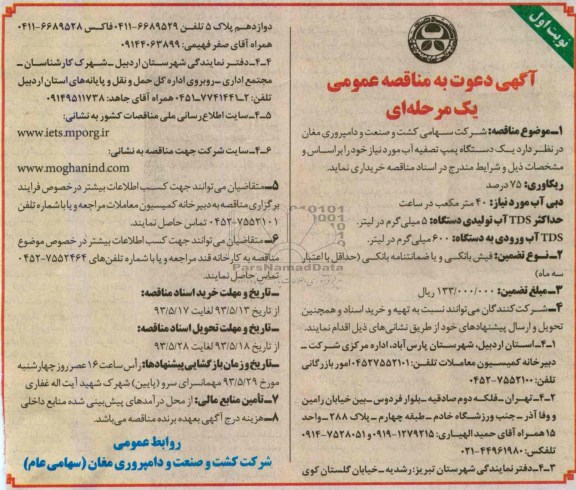 نوبت اول
آگهی دعوت به مناقصه عمومی
یک مرحله‌ای
۱ــ موضوع مناقصه: شرکت سهامی کشت و صنعت و دامپروری مغان
در نظر دارد یک دستگاه پمپ تصفیه آب مورد نیاز خود را بر اساس و
مشخصات ذیل و شرایط مندرج در اسناد مناقصه خریداری نماید.
ریکاوری: ۷۵ درصد
دبی آب مورد نیاز: ۴۰ متر مکعب در ساعت
حداکثر TDS آب تولیدی دستگاه: ۵ میلی‌گرم در لیتر.
TDS آب ورودی به دستگاه: ۶۰۰ میلی‌گرم در لیتر.
۲ــ نوع تضمین: فیش بانکی و یا ضمانتنامه بانکی (حداقل با اعتبار
سه ماه)
۳ــ مبلغ تضمین: ۱۳۳/۰۰۰/۰۰۰ ریال
۴ــ شرکت‌کنندگان می‌توانند نسبت به تهیه و خرید اسناد و همچنین
تحویل و ارسال پیشنهادهای خود از طریق نشانی‌های ذیل اقدام نمایند.
۴ــ۱ــ استان اردبیل، شهرستان پارس‌آباد، اداره مرکزی شرکت ــ
دبیرخانه کمیسیون معاملات تلفن: ۰۴۵۲۷۵۵۲۱۰۱ امور بازرگانی
تلفن: ۷۵۵۲۱۰۰-۰۴۵۲
۴ــ۲ــ تهران ــ فلکه دوم صادقیه ــ بلوار فردوس ــ بین خیابان رامین
و وفا آذر ــ جنب ورزشگاه خادم ــ طبقه چهارم ــ پلاک ۲۸۸ ــ واحد
۱۵ همراه آقای حمید الهیاری: ۱۲۷۹۲۱۵-۰۹۱۹ و ۷۵۲۸۰۵۱-۰۹۱۴
تلفکس: ۴۴۹۶۱۹۸۰-۰۲۱
۴ــ۳ــ دفتر نمایندگی شهرستان تبریز: رشدیه ــ خیابان گلستان کوی
دوازدهم پلاک ۵ تلفن ۶۶۸۹۵۲۹-۰۴۱۱ فاکس ۶۶۸۹۵۲۸-۰۴۱۱
همراه آقای صفر فهیمی: ۰۹۱۴۴۰۶۳۸۹۹
۴ــ۴ــ دفتر نمایندگی شهرستان اردبیل ــ شهرک کارشناسان ــ
مجتمع اداری ــ روبروی اداره کل حمل و نقل و پایانه‌های استان اردبیل
تلفن: ۲-۷۷۴۱۴۴۱-۰۴۵۱ همراه آقای جاهد: ۰۹۱۴۹۵۱۱۷۳۸
۴ــ۵ــ سایت اطلاع رسانی ملی مناقصات کشور به نشانی:
www.iets.mporg.ir
۴ــ۶ــ سایت شرکت جهت مناقصه به نشانی:
www.moghanind.com
۵ــ متقاضیان می‌توانند جهت کسب اطلاعات بیشتر در خصوص فرایند
برگزاری مناقصه به دبیرخانه کمیسیون معاملات مراجعه و یا با شماره تلفن
۷۵۵۲۱۰۱-۰۴۵۲ تماس حاصل نمایند.
۶ــ متقاضیان می‌توانند جهت کسب اطلاعات بیشتر در خصوص موضوع
مناقصه به کارخانه قند مراجعه و یا با شماره تلفن‌های ۷۵۵۲۴۶۴-۰۴۵۲
تماس حاصل نمایند.
ــ تاریخ و مهلت خرید اسناد مناقصه:
از تاریخ ۹۳/۵/۱۳ لغایت ۹۳/۵/۱۷
ــ تاریخ و مهلت تحویل اسناد مناقصه:
از تاریخ ۹۳/۵/۱۸ لغایت ۹۳/۵/۲۸
ــ تاریخ و زمان بازگشایی پیشنهادها: رأس ساعت ۱۶ عصر روز چهارشنبه
مورخ ۹۳/۵/۲۹ مهمانسرای سرو (پایین) شهرک شهید آیت اله غفاری
۷ــ تأمین منابع مالی: از محل درآمدهای پیش‌بینی شده منابع داخلی
۸ــ هزینه درج آگهی بعهده برنده مناقصه می‌باشد.
روابط عمومی
شرکت کشت و صنعت و دامپروری مغان (سهامی عام)
ParsNamadData